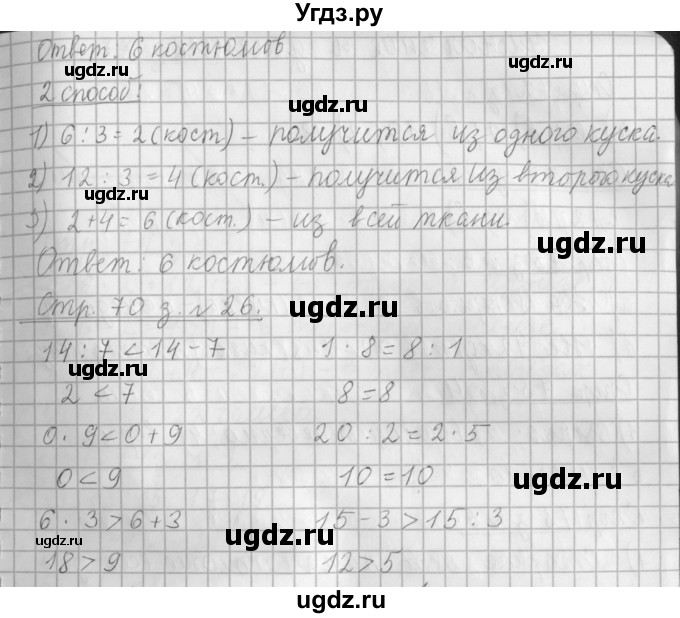 Угдз.ру
Ответ: 6 костюмов
ugdz.ru ugdz.ru
2 способ:
1) 6 : 3 = 2 (кост) – получится из одного куска.
ugdz.ru
2) 12 : 3 = 4 (кост.) – получится из второго куска
3) 2 + 4 = 6 (кост.) – из всей ткани.
ugdz.ru
Ответ: 6 костюмов.
Стр. 70 з. № 26.
ugdz.ru
14 : 7 < 14 – 7 1 · 8 = 8 : 1
ugdz.ru
2 < 7 8 = 8
0 · 9 < 0 + 9 20 : 2 = 2 · 5
0 < 9 10 = 10
ugdz.ru
6 · 3 > 6 + 3 15 – 3 > 15 : 3
ugdz.ru ugdz.ru
18 > 9 12 > 5
ugdz.ru
ugdz.ru